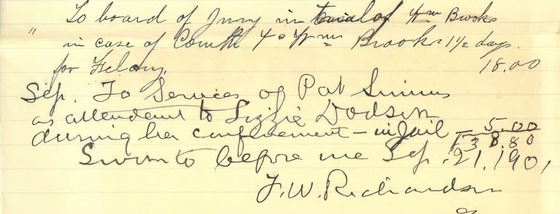 To board of Jury in trial of Wm Brooks
" in case of Comth vs Wm Brooks 1 1/2 days.
for Felony. 18.00
Sep. To Services of Pat Simms
as attendent to Lizzie Dodson
during her confinement - in jail 5.00
138.80
Sworn to before me Sep. 21, 1901
J.W. Richardson